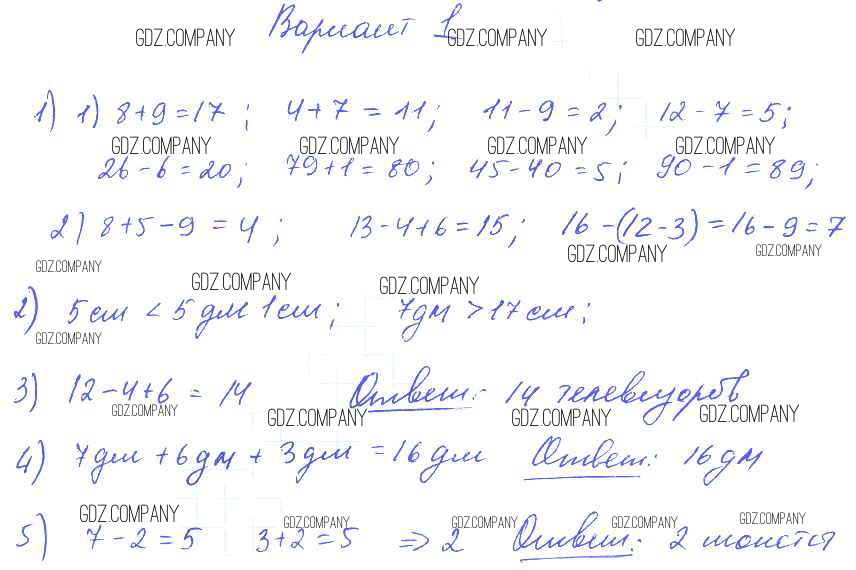 Вариант 1
GDZ.COMPANY GDZ.COMPANY GDZ.COMPANY
1) 1) 8+9=17; 4+7=11; 11-9=2; 12-7=5;
GDZ.COMPANY GDZ.COMPANY GDZ.COMPANY GDZ.COMPANY
26-6=20; 79+1=80; 45-40=5; 90-1=89;
2) 8+5-9=4; 13-4+6=15; 16-(12-3)=16-9=7
GDZ.COMPANY GDZ.COMPANY
GDZ.COMPANY GDZ.COMPANY GDZ.COMPANY
2) 5см < 5дм 1см; 7дм > 17см;
GDZ.COMPANY
3) 12-4+6=14 Ответ: 14 телевизоров
GDZ.COMPANY GDZ.COMPANY GDZ.COMPANY GDZ.COMPANY
4) 7дм+6дм+3дм=16дм Ответ: 16дм
GDZ.COMPANY GDZ.COMPANY GDZ.COMPANY GDZ.COMPANY GDZ.COMPANY
5) 7-2=5 3+2=5 => 2 Ответ: 2 монеты